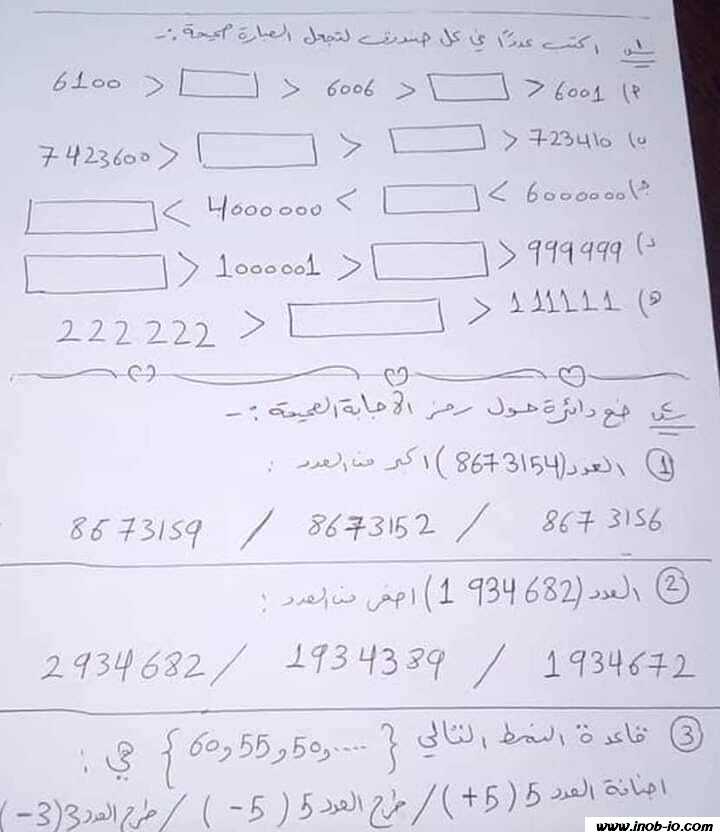 س1 اكتب عدداً في كل صندوق لتجعل العبارة صحيحة :-
أ) 6001 < □ < 6006 < □ < 6100
ب) 723410 < □ < □ < 7423600
ج) 6000000 > □ > 4000000 > □
د) 999999 < □ < 1000001 < □
ه) 111111 < □ < 222 222
س2 ضع دائرة حول رمز الاجابة الصحيحة :-
① العدد (8673154) اكبر من العدد :
8673156 / 8673152 / 8673159
② العدد (1 934 682) اصغر من العدد :
1934672 / 1934389 / 2934682
③ قاعدة النمط التالي {60و55و50و....} هي :
اضافة العدد 5 (5+) / طرح العدد 5 (5-) / طرح العدد 3 (3-)
www.inob-io.com